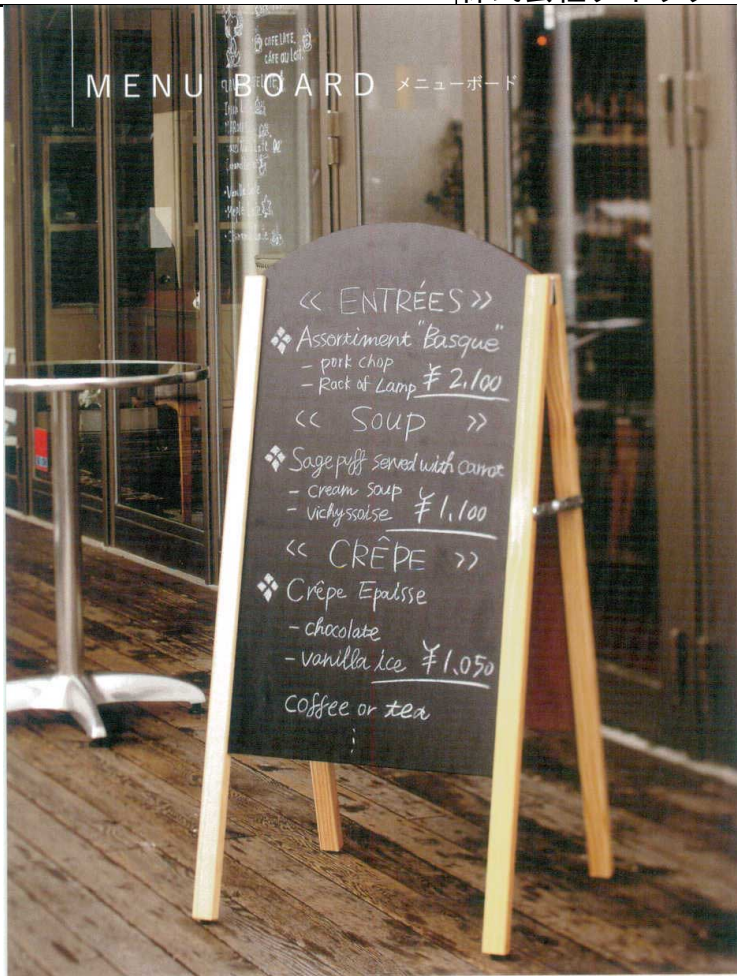 MENU BOARD メニューボード
CAFE LATE.
CAFE au Lait.
<< ENTRÉES >>
❖ Assortiment "Basque"
- pork chop
- Rack of Lamp ¥2,100
<< Soup >>
❖ Sage puff served with carrot
- cream soup
- vichyssoise ¥1,100
<< CRÊPE >>
❖ Crêpe Epaisse
- chocolate
- vanilla ice ¥1,050
coffee or tea